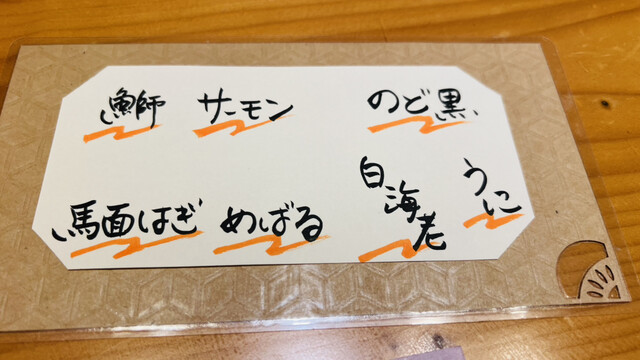 鰤 サーモン のど黒
馬面はぎ めばる 白海老 うに